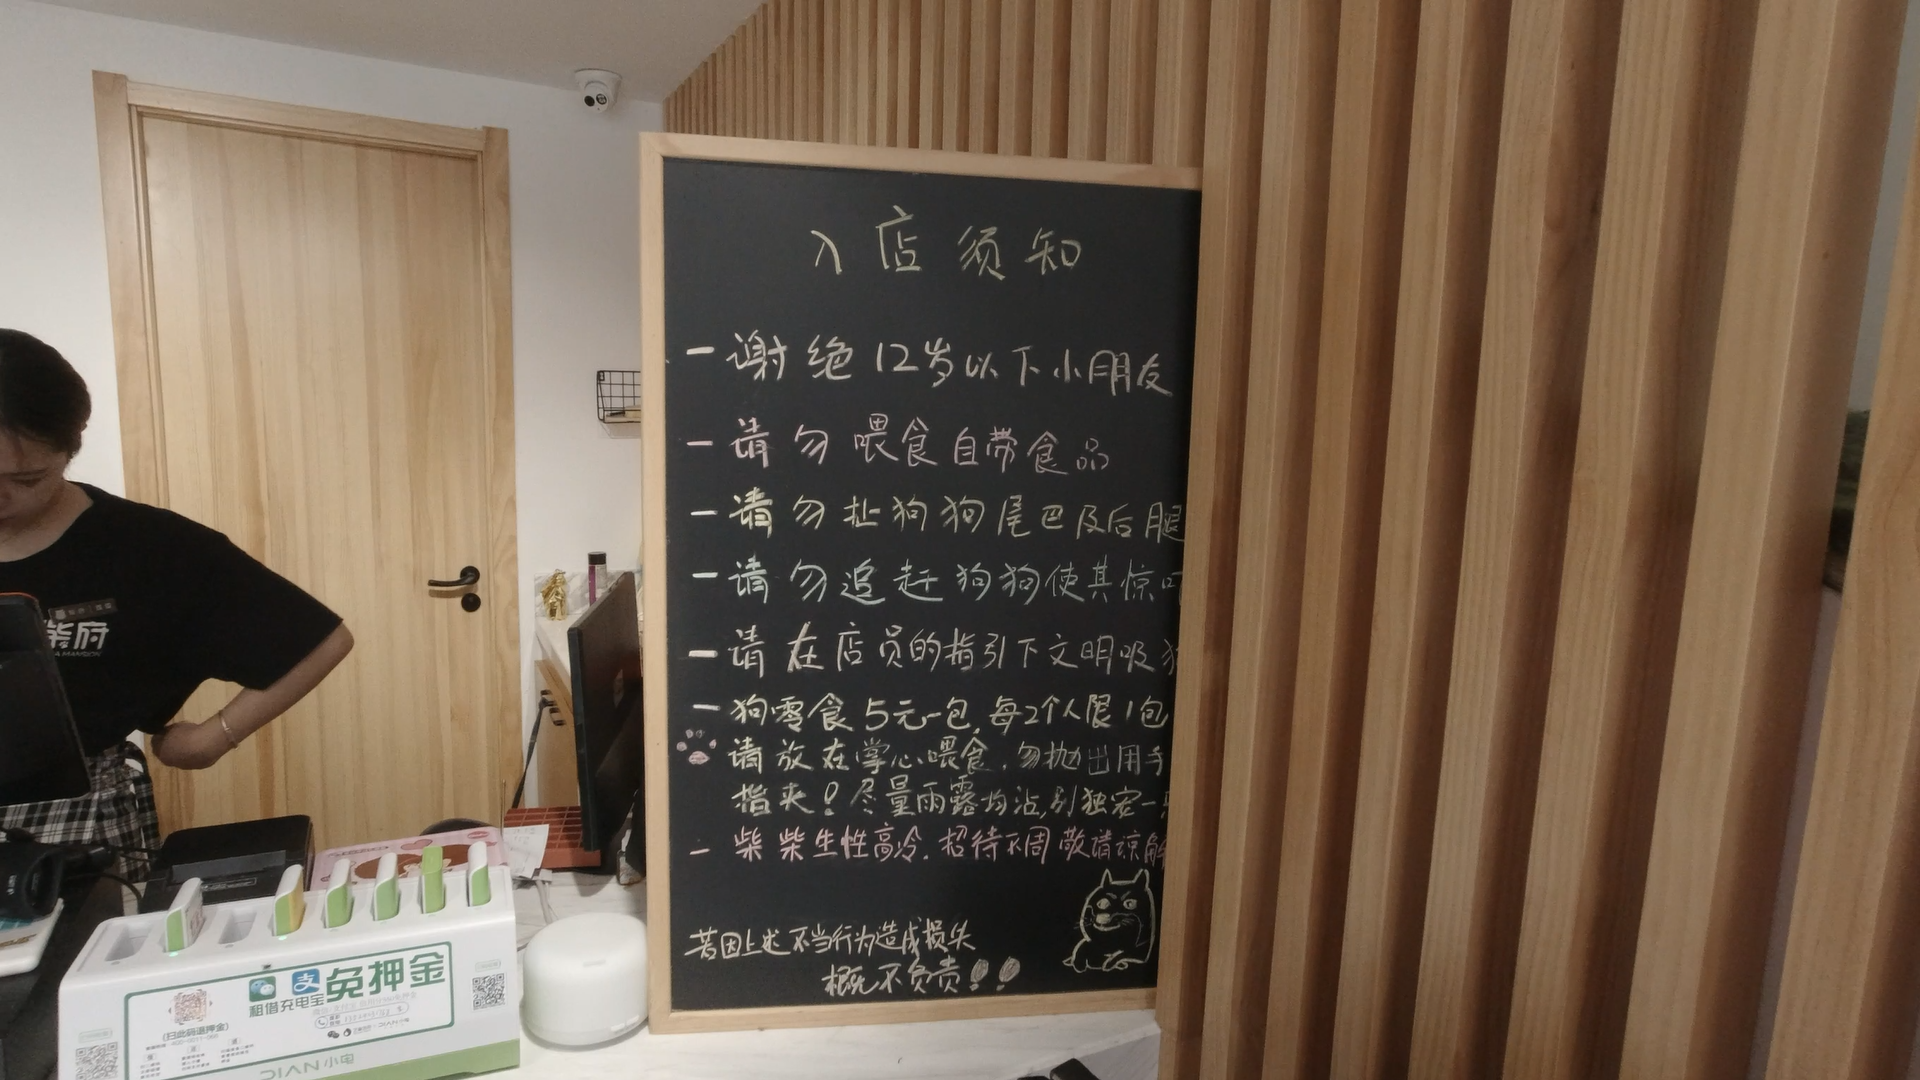 入店须知
一谢绝12岁以下小朋友
一请勿喂食自带食品
一请勿扯狗狗尾巴及后腿
一请勿追赶狗狗使其惊
一请在店员的指引下文明吸
一狗零食5元一包,每2个人限1包
请放在掌心喂食.勿抛出用手
指夹!尽量雨露均沾,别独宠一
一柴柴生性高冷.招待不周敬请谅解
若因上述不当行为造成损失
概不负责!!
柴府
租借充电宝免押金
(扫此码退押金)
DIAN小电